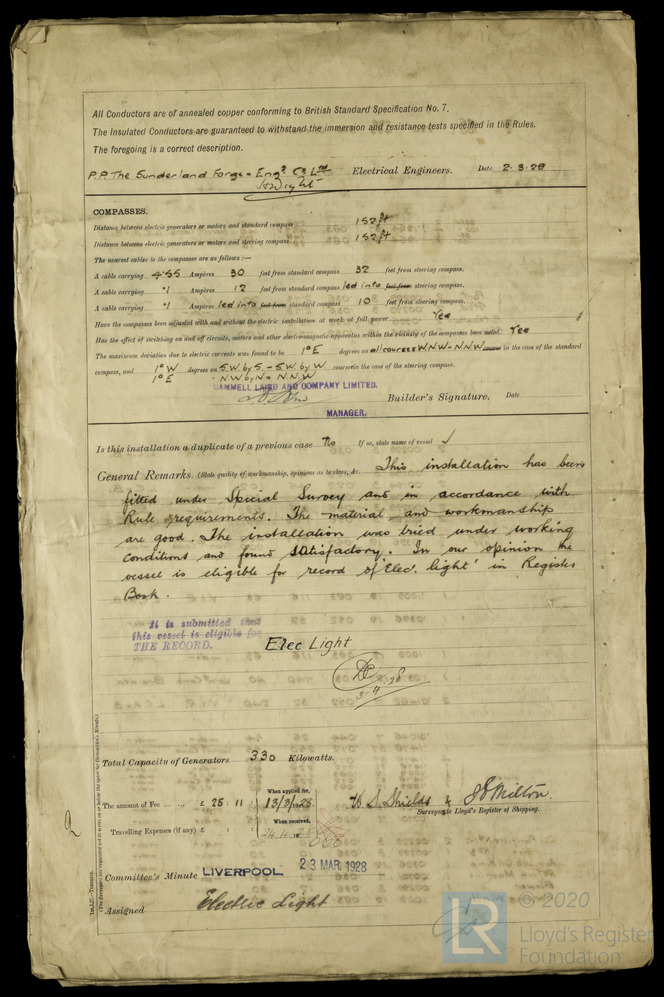 All Conductors are of annealed copper conforming to British Standard Specification No. 7.
The Insulated Conductors are guaranteed to withstand the immersion and resistance tests specified in the Rules.
The foregoing is a correct description.
P.P. The Sunderland Forge & Engg Co Ltd Electrical Engineers. Date 2.3.28
COMPASSES.
Distance between electric generators or motors and standard compass 152 ft
Distance between electric generators or motors and steering compass 152 ft
The nearest cables to the compasses are as follows:—
A cable carrying 4.55 Ampères 30 feet from standard compass 32 feet from steering compass.
A cable carrying .1 Ampères 12 feet from standard compass led into feet from steering compass.
A cable carrying .1 Ampères led into feet from standard compass 10 feet from steering compass.
Have the compasses been adjusted with and without the electric installation at work at full power Yes
Has the effect of switching on and off circuits, motors and other electro-magnetic apparatus within the vicinity of the compasses been noted Yes
The maximum deviation due to electric currents was found to be 1° E degrees on all courses W.N.W - N.W.W course in the case of the standard
compass, and 1° W degrees on S.W. by S. - S.W. by W course in the case of the steering compass.
1° E - N.W. by N. - N.N.W
CAMMELL LAIRD AND COMPANY LIMITED.
Builder's Signature. Date
MANAGER.
Is this installation a duplicate of a previous case No If so, state name of vessel
General Remarks (State quality of workmanship, opinions as to class, &c. This installation has been
fitted under Special Survey and in accordance with
Rule requirements. The material and workmanship
are good. The installation was tried under working
conditions and found satisfactory. In our opinion the
vessel is eligible for record of 'Elec. light' in Register
Book.
It is submitted that
this vessel is eligible for
THE RECORD. Elec Light
3-4-28
Total Capacity of Generators 330 Kilowatts.
The amount of Fee £ 25 : 11 : When applied for, 13/3/1928
When received,
Travelling Expenses (if any) £
W. S. Shields & J. D. Milton.
Surveyors to Lloyd's Register of Shipping.
Committee's Minute LIVERPOOL 23 MAR 1928
Assigned Electric Light
2
© 2020
LR Lloyd's Register
Foundation